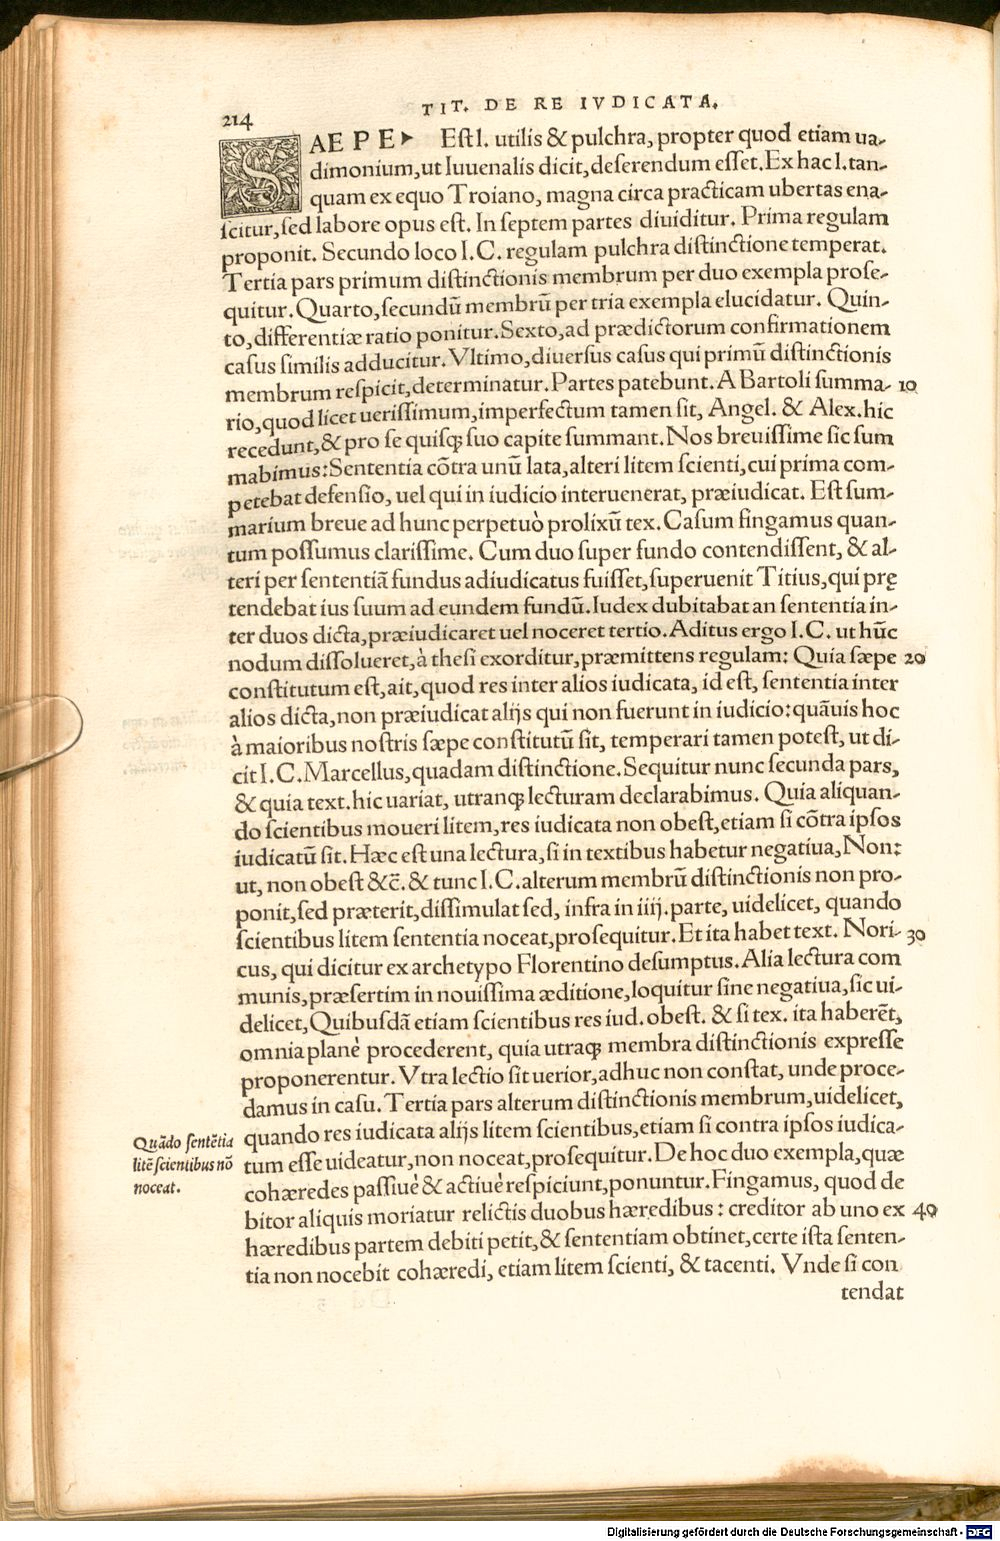 TIT. DE RE IVDICATA.
214
SAEPE Est l. utilis & pulchra, propter quod etiam ua-
dimonium, ut Iuuenalis dicit, deserendum esset. Ex hac l. tan-
quam ex equo Troiano, magna circa practicam ubertas ena-
scitur, sed labore opus est. In septem partes diuiditur. Prima regulam
proponit. Secundo loco I.C. regulam pulchra distinctione temperat.
Tertia pars primum distinctionis membrum per duo exempla prose-
quitur. Quarto, secundū membrū per tria exempla elucidatur. Quin-
to, differentiæ ratio ponitur. Sexto, ad prædictorum confirmationem
casus similis adducitur. Vltimo, diuersus casus qui primū distinctionis
membrum respicit, determinatur. Partes patebunt. A Bartoli summa- 10
rio, quod licet uerissimum, imperfectum tamen sit, Angel. & Alex. hic
recedunt, & pro se quisqꝫ suo capite summant. Nos breuissime sic sum
mabimus: Sententia cōtra unū lata, alteri litem scienti, cui prima com-
petebat defensio, uel qui in iudicio interuenerat, præiudicat. Est sum-
marium breue ad hunc perpetuò prolixū tex. Casum fingamus quan-
tum possumus clarissime. Cum duo super fundo contendissent, & al-
teri per sententiā fundus adiudicatus fuisset, superuenit Titius, qui prę
tendebat ius suum ad eundem fundū. Iudex dubitabat an sententia in-
ter duos dicta, præiudicaret uel noceret tertio. Aditus ergo I.C. ut hūc
nodum dissolueret, à thesi exorditur, præmittens regulam: Quia sæpe 20
constitutum est, ait, quod res inter alios iudicata, id est, sententia inter
alios dicta, non præiudicat alijs qui non fuerunt in iudicio: quāuis hoc
à maioribus nostris sæpe constitutū sit, temperari tamen potest, ut di-
cit I.C. Marcellus, quadam distinctione. Sequitur nunc secunda pars,
& quia text. hic uariat, utranqꝫ lecturam declarabimus. Quia aliquan-
do scientibus moueri litem, res iudicata non obest, etiam si cōtra ipsos
iudicatū sit. Hæc est una lectura, si in textibus habetur negatiua, Non:
ut, non obest &c̄. & tunc I.C. alterum membrū distinctionis non pro-
ponit, sed præterit, dissimulat sed, infra in iiij. parte, uidelicet, quando
scientibus litem sententia noceat, prosequitur. Et ita habet text. Nori- 30
cus, qui dicitur ex archetypo Florentino desumptus. Alia lectura com
munis, præsertim in nouissima æditione, loquitur sine negatiua, sic ui-
delicet, Quibusdā etiam scientibus res iud. obest. & si tex. ita haberēt,
omnia planè procederent, quia utraqꝫ membra distinctionis expresse
proponerentur. Vtra lectio sit uerior, adhuc non constat, unde proce-
damus in casu. Tertia pars alterum distinctionis membrum, uidelicet,
quando res iudicata alijs litem scientibus, etiam si contra ipsos iudica-
tum esse uideatur, non noceat, prosequitur. De hoc duo exempla, quæ
cohæredes passiuè & actiuè respiciunt, ponuntur. Fingamus, quod de
bitor aliquis moriatur relictis duobus hæredibus: creditor ab uno ex 40
hæredibus partem debiti petit, & sententiam obtinet, certe ista senten-
tia non nocebit cohæredi, etiam litem scienti, & tacenti. Vnde si con
tendat
Quādo sentētia
litē scientibus nō
noceat.
Digitalisierung gefördert durch die Deutsche Forschungsgemeinschaft - DFG